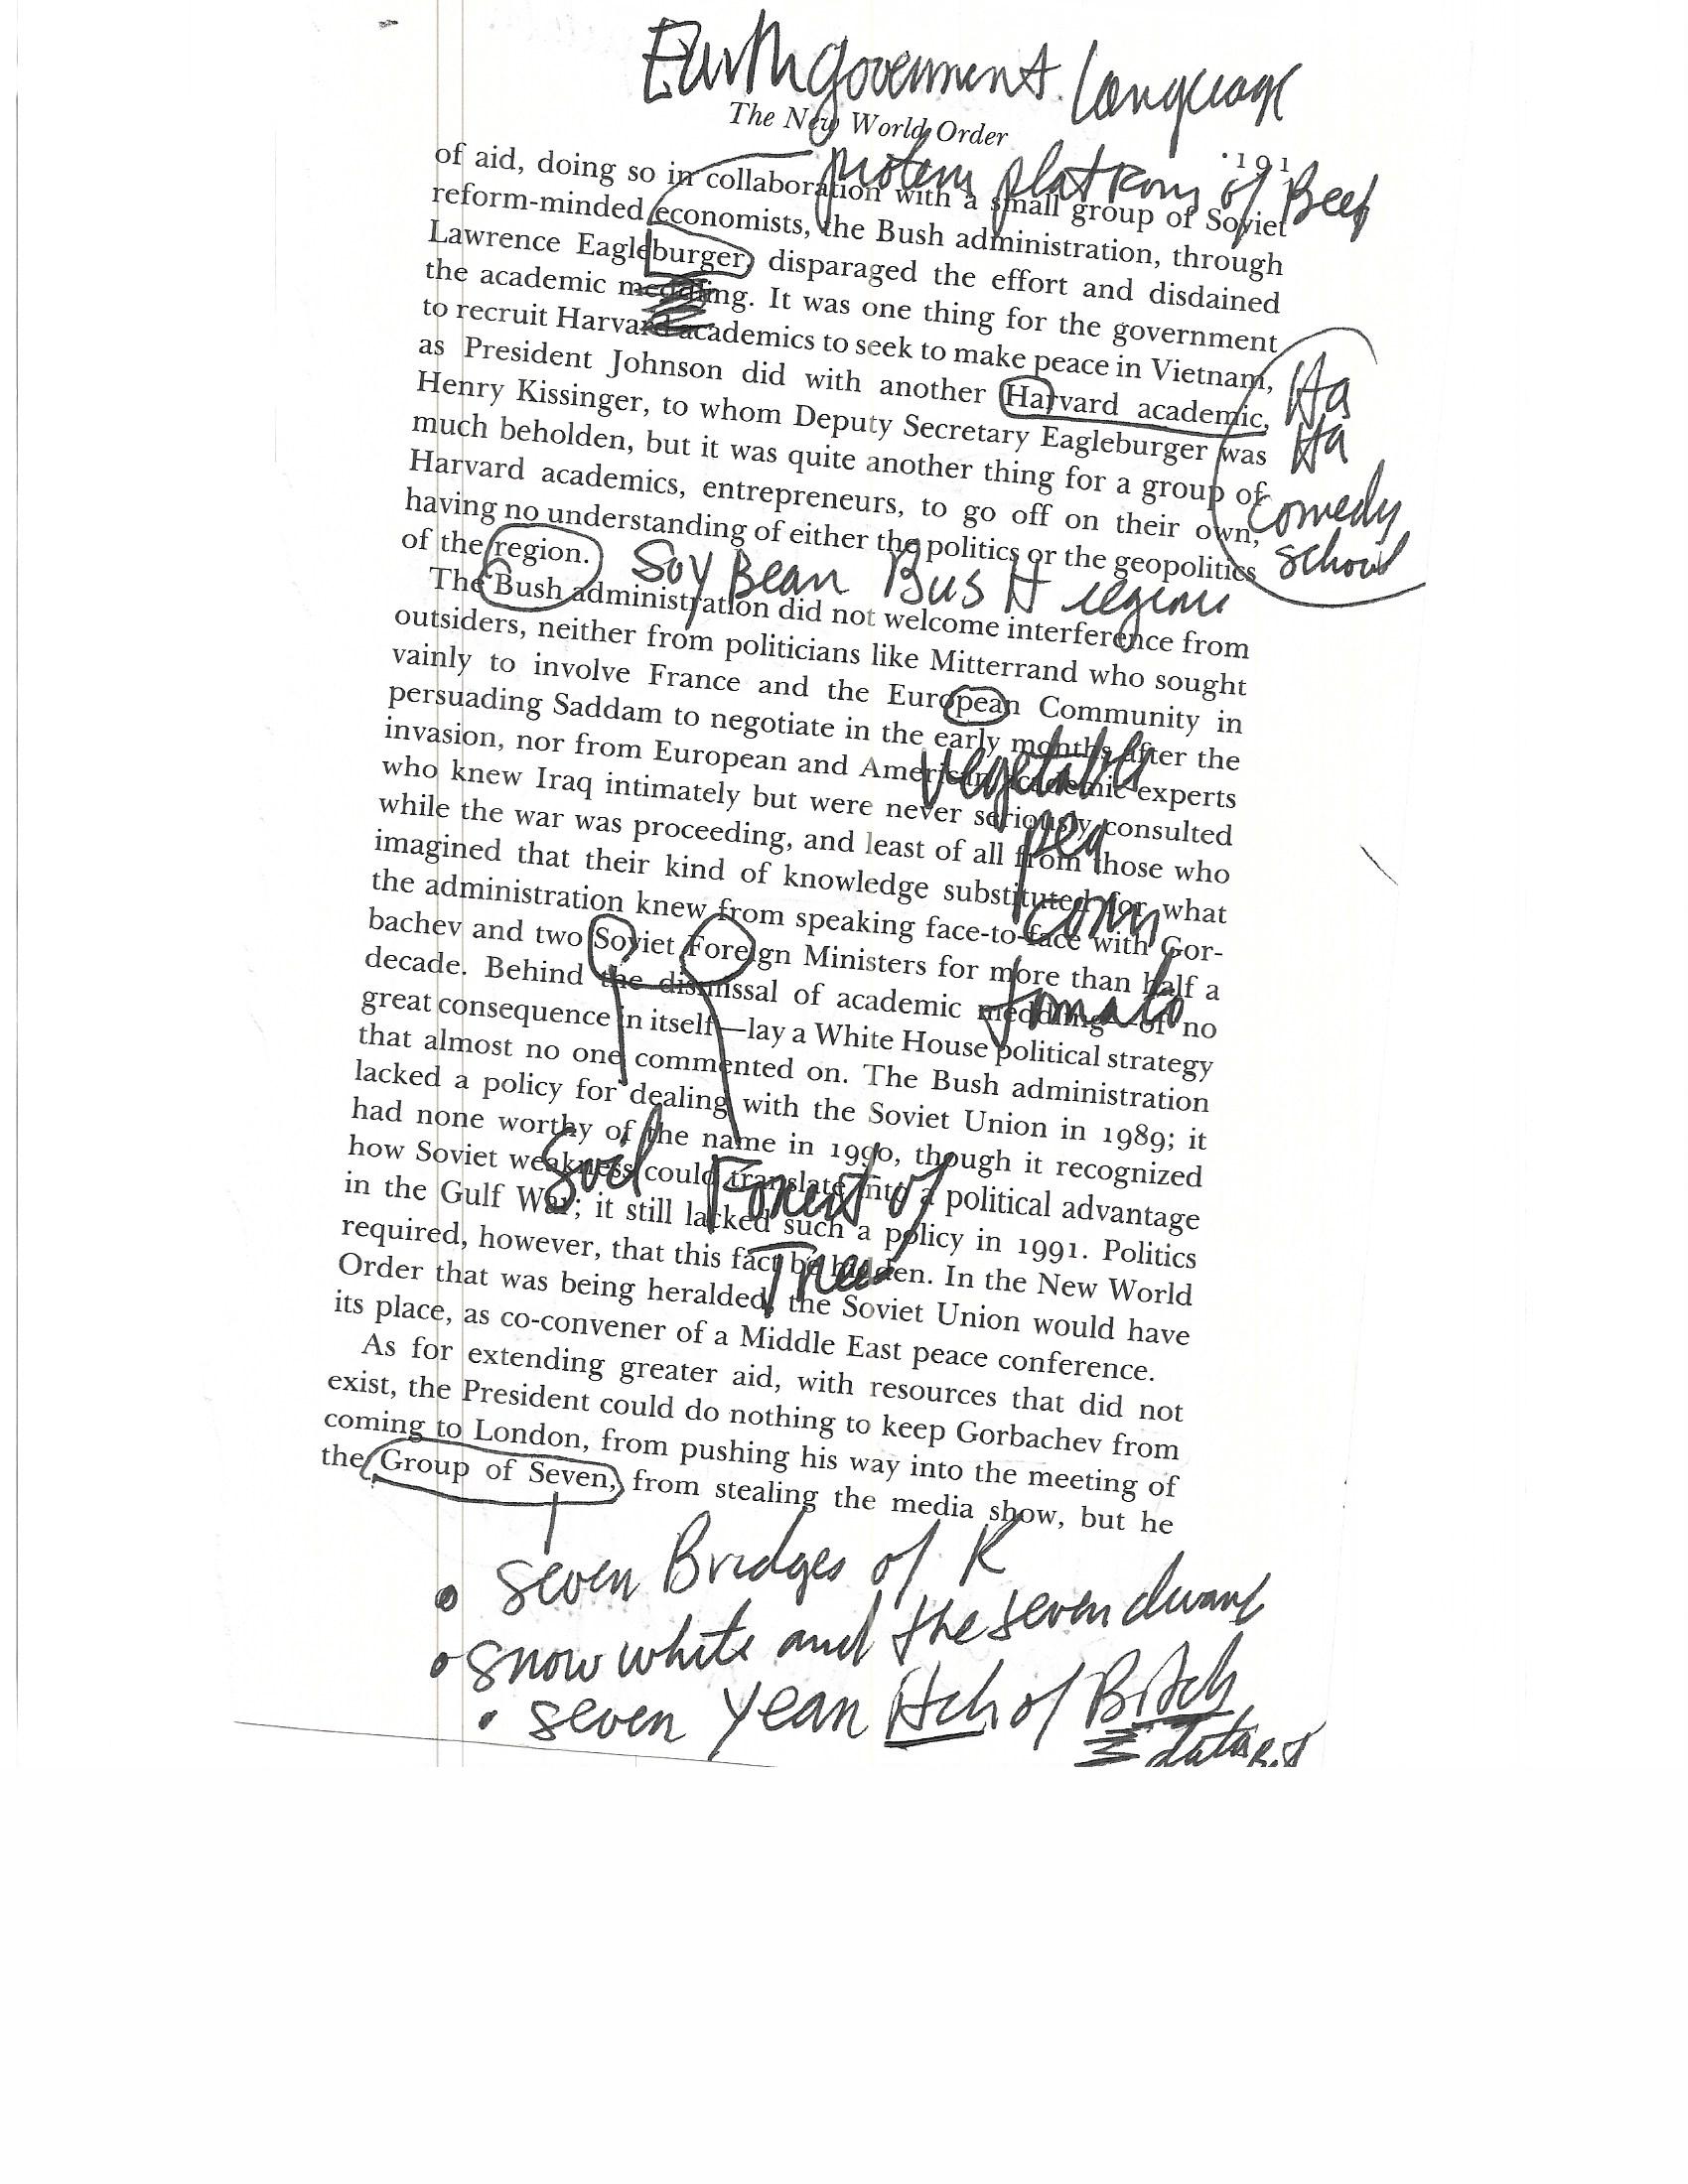 Earth government language
The New World Order
·191
protein platform of Beef
of aid, doing so in collaboration with a small group of Soviet
reform-minded economists, the Bush administration, through
Lawrence Eagleburger, disparaged the effort and disdained
the academic meddling. It was one thing for the government
to recruit Harvard academics to seek to make peace in Vietnam,
as President Johnson did with another Harvard academic,
Henry Kissinger, to whom Deputy Secretary Eagleburger was
much beholden, but it was quite another thing for a group of
Harvard academics, entrepreneurs, to go off on their own,
having no understanding of either the politics or the geopolitics
of the region.
Ha
Ha
comedy
school
Soy Bean Bush region
The Bush administration did not welcome interference from
outsiders, neither from politicians like Mitterrand who sought
vainly to involve France and the European Community in
persuading Saddam to negotiate in the early months after the
invasion, nor from European and American academic experts
who knew Iraq intimately but were never seriously consulted
while the war was proceeding, and least of all from those who
imagined that their kind of knowledge substituted for what
the administration knew from speaking face-to-face with Gor-
bachev and two Soviet Foreign Ministers for more than half a
decade. Behind the dismissal of academic meddling—of no
great consequence in itself—lay a White House political strategy
that almost no one commented on. The Bush administration
lacked a policy for dealing with the Soviet Union in 1989; it
had none worthy of the name in 1990, though it recognized
how Soviet weakness could translate into a political advantage
in the Gulf War; it still lacked such a policy in 1991. Politics
required, however, that this fact be hidden. In the New World
Order that was being heralded, the Soviet Union would have
its place, as co-convener of a Middle East peace conference.
vegetable
pea
corn
tomato
Soil Forest of
Trees
As for extending greater aid, with resources that did not
exist, the President could do nothing to keep Gorbachev from
coming to London, from pushing his way into the meeting of
the Group of Seven, from stealing the media show, but he
• seven Bridges of K
• snow white and the seven dwarf
• seven year Itch of Bitch
data Bit